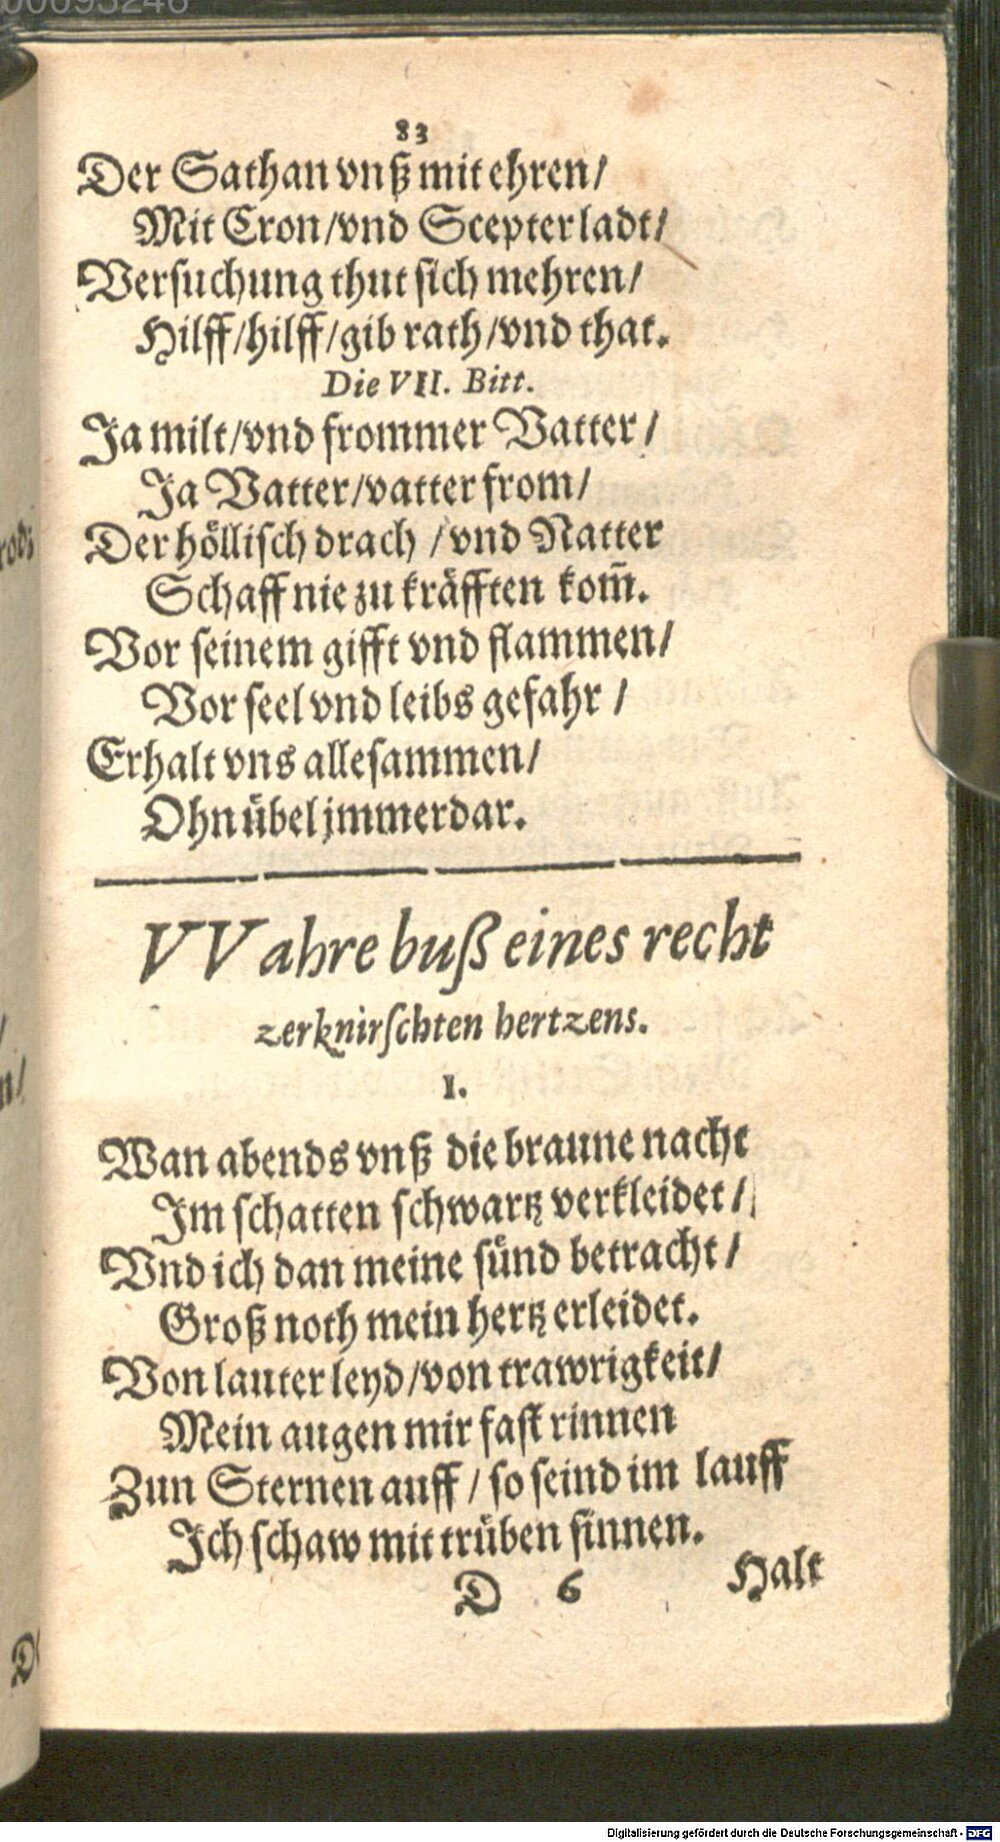 83
Der Sathan vnß mit ehren/
Mit Cron/vnd Scepter ladt/
Versuchung thut sich mehren/
Hilff/hilff/gib rath/vnd that.
Die VII. Bitt.
Ja milt/vnd frommer Vatter/
Ja Vatter/vatter from/
Der höllisch drach/vnd Natter
Schaff nie zu kräfften kom̃.
Vor seinem gifft vnd flammen/
Vor seel vnd leibs gefahr/
Erhalt vns allesammen/
Ohn übel jmmerdar.
VVahre buß eines recht
zerknirschten hertzens.
I.
Wan abends vnß die braune nacht
Im schatten schwartz verkleidet/
Vnd ich dan meine sünd betracht/
Groß noth mein hertz erleidet.
Von lauter leyd/von trawrigkeit/
Mein augen mir fast rinnen
Zun Sternen auff/so seind im lauff
Ich schaw mit trüben sinnen.
D 6 Halt
Digitalisierung gefördert durch die Deutsche Forschungsgemeinschaft - DFG